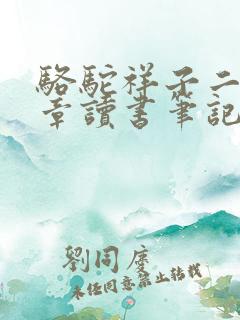 駱駝祥子二
章讀書筆記
劉同度
未經同意禁止轉載